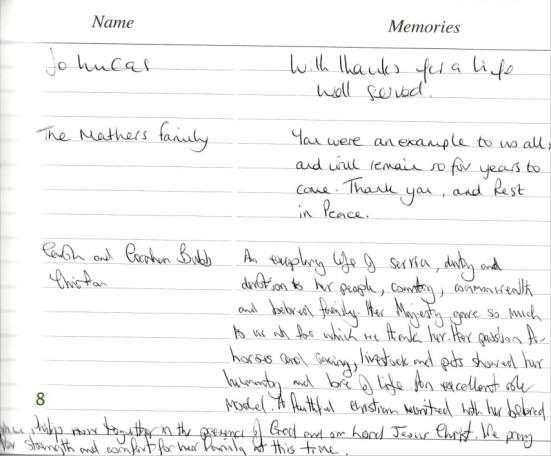 Name Memories
Jo Lucas With thanks for a life
well served.
The Mathers family You were an example to us all,
and will remain so for years to
come. Thank you, and Rest
in Peace.
and Bubb An exemplary life of service, duty and
devotion to her people, country, commonwealth
and beloved family. Her Majesty gave so much
to us all for which we thank her. Her passion for
horses and racing, livestock and pets showed her
humanity and love of life. An excellent role
model. A faithful christian reunited with her beloved
8
together in the presence of God and our Lord Jesus Christ. We pray
for strength and comfort for her family at this time.